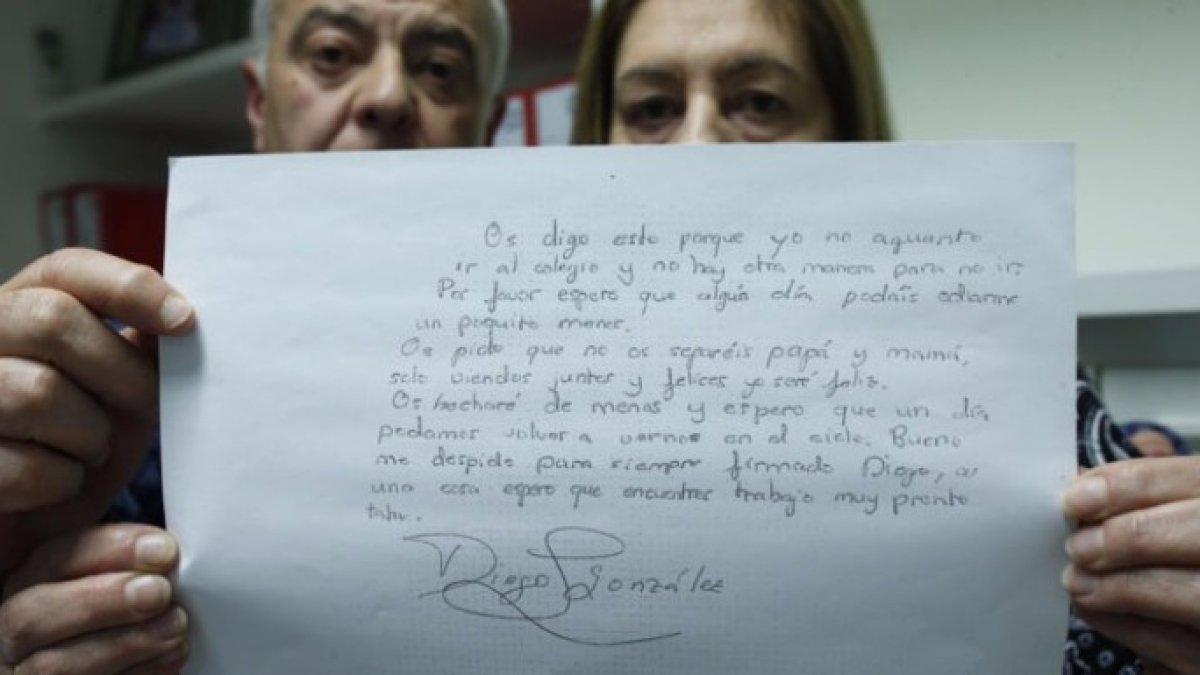 Os digo esto porque yo no aguanto
ir al colegio y no hay otra manera para no ir.
Por favor espero que algún día podáis odiarme
un poquito menos.
Os pido que no os separéis papá y mamá,
solo viendos juntos y felices yo seré feliz.
Os hecharé de menos y espero que un día
podamos volver a vernos en el cielo. Bueno
me despido para siempre firmado Diego, a
una cosa espero que encuentres trabajo muy pronto
tata.
Diego González